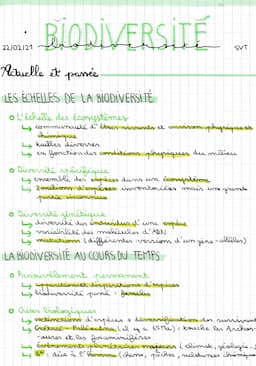 BIODIVERSITÉ
biodiversité
22/02/21 SVT
Actuelle et passée
LES ÉCHELLES DE LA BIODIVERSITÉ
o L'échelle des écosystèmes
↳ communauté d'êtres vivants et environ. physiques et
chimique
↳ tailles diverses
↳ en fonction des conditions physiques du milieu
o Diversité spécifique
↳ ensemble des espèces dans un écosystème
↳ 2 millions d'espèces inventoriées mais une grande
partie inconnue
o Diversité génétique
↳ diversité des individus d'une espèce
↳ variabilité des molécules d'ADN
↳ mutations (différentes versions d'un gène = allèles)
LA BIODIVERSITÉ AU COURS DU TEMPS
o Renouvellement permanent
↳ apparition et disparition d'espèces
↳ biodiversité passé : fossiles
o Crises biologiques
↳ extinctions d'espèces + diversification des survivants
↳ Crétacé - (il y a 65 Ma) : touche les
et les foraminifères
↳ événements planétaires majeurs (climat, géologie
↳ 6e (due à l'Homme (chasse, pêches, substances chimiques